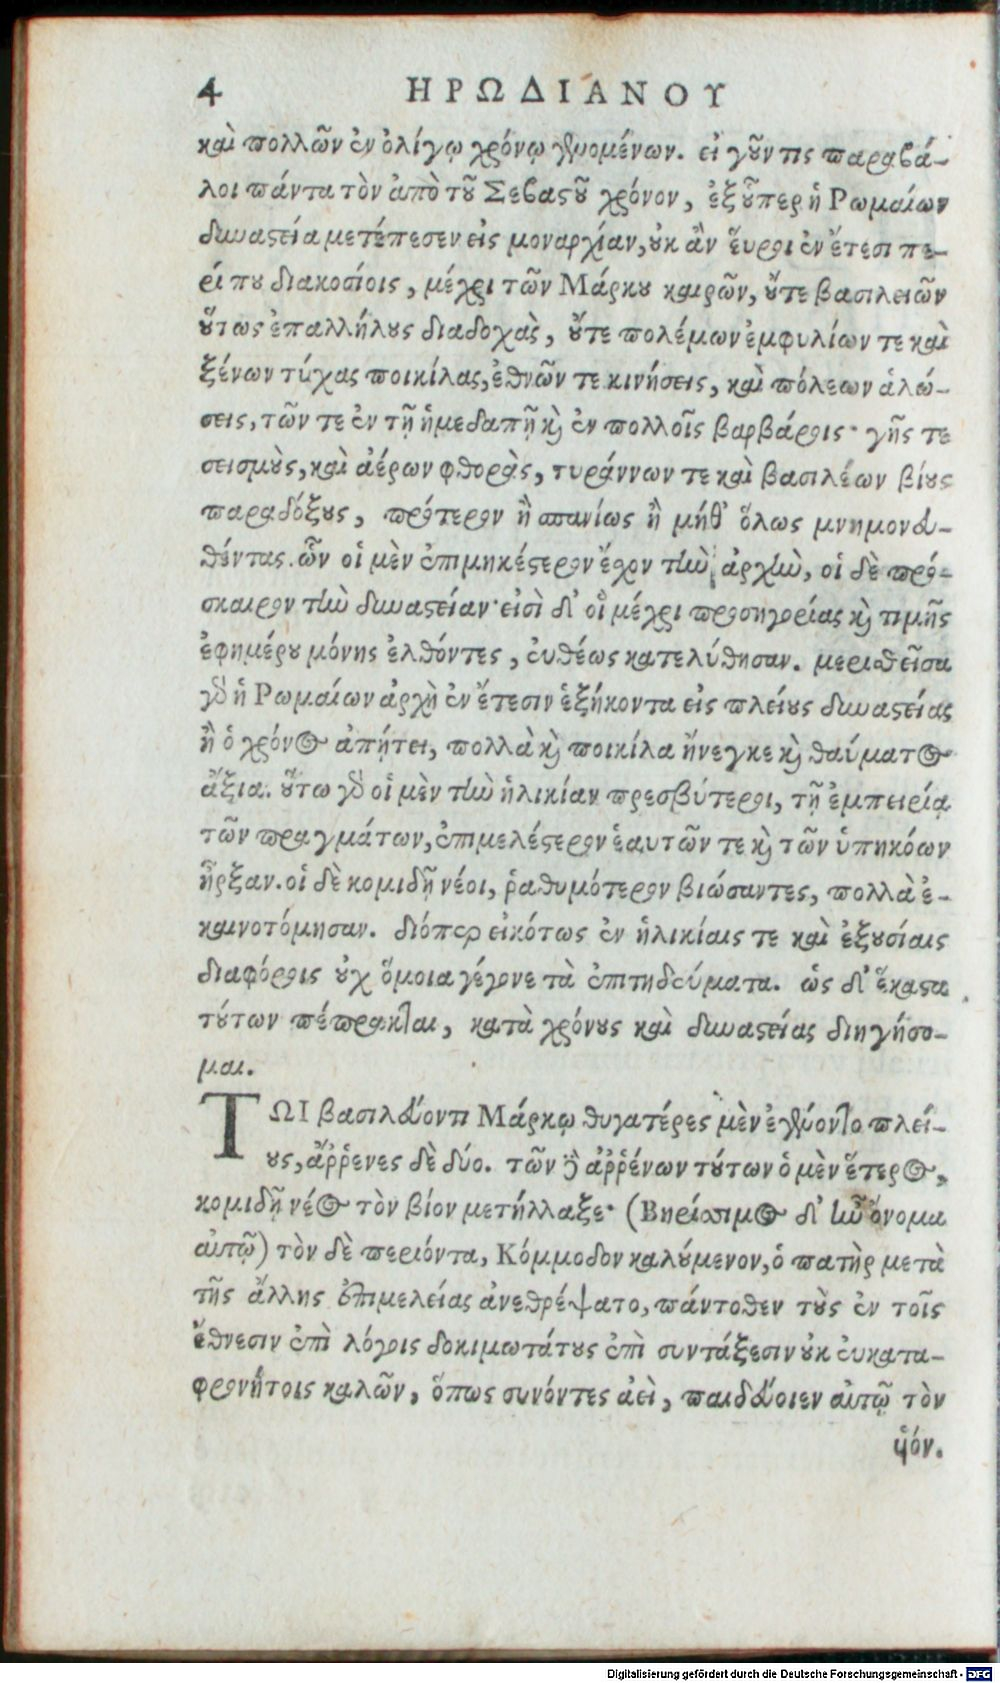 4 ΗΡΩΔΙΑΝΟΥ
καὶ πολλῶν ἐν ὀλίγῳ χρόνῳ γενομένων. εἰ γοῦν τις παραβά-
λοι πάντα τὸν ἀπὸ τοῦ Σεβαστοῦ χρόνον, ἐξοῦπερ ἡ Ρωμαίων
δυναστεία μετέπεσεν εἰς μοναρχίαν, οὐκ ἂν εὕροι ἐν ἔτεσι πε-
ρί που διακοσίοις, μέχρι τῶν Μάρκου καιρῶν, οὔτε βασιλειῶν
οὕτως ἐπαλλήλους διαδοχὰς, οὔτε πολέμων ἐμφυλίων τε καὶ
ξένων τύχας ποικίλας, ἐθνῶν τε κινήσεις, καὶ πόλεων ἁλώ-
σεις, τῶν τε ἐν τῇ ἡμεδαπῇ καὶ ἐν πολλοῖς βαρβάροις· γῆς τε
σεισμοὺς, καὶ ἀέρων φθορὰς, τυράννων τε καὶ βασιλέων βίους
παραδόξους, πρότερον ἢ σπανίως ἢ μήθ' ὅλως μνημονευ-
θέντας. ὧν οἱ μὲν ἐπιμηκέστερον ἔσχον τὴν ἀρχὴν, οἱ δὲ πρό-
σκαιρον τὴν δυναστείαν· εἰσὶ δ' οἳ μέχρι προσηγορίας καὶ τιμῆς
ἐφημέρου μόνης ἐλθόντες, εὐθέως κατελύθησαν. μερισθεῖσα
γὰρ ἡ Ρωμαίων ἀρχὴ ἐν ἔτεσιν ἑξήκοντα εἰς πλείους δυναστείας
ἢ ὁ χρόνος ἀπῄτει, πολλὰ καὶ ποικίλα ἤνεγκε καὶ θαύματος
ἄξια. οὕτω γὰρ οἱ μὲν τὴν ἡλικίαν πρεσβύτεροι, τῇ ἐμπειρίᾳ
τῶν πραγμάτων, ἐπιμελέστερον ἑαυτῶν τε καὶ τῶν ὑπηκόων
ἦρξαν. οἱ δὲ κομιδῇ νέοι, ῥαθυμότερον βιώσαντες, πολλὰ ἐ-
καινοτόμησαν. διόπερ εἰκότως ἐν ἡλικίαις τε καὶ ἐξουσίαις
διαφόροις οὐχ ὅμοια γέγονε τὰ ἐπιτηδεύματα. ὡς δ' ἕκαστα
τούτων πέπρακται, κατὰ χρόνους καὶ δυναστείας διηγήσο-
μαι.
ΤΩΙ βασιλεύοντι Μάρκῳ θυγατέρες μὲν ἐγένοντο πλεί-
ους, ἄῤῥενες δὲ δύο. τῶν δὲ ἀῤῥένων τούτων ὁ μὲν ἕτερος,
κομιδῇ νέος τὸν βίον μετήλλαξε· (Βηρίσσιμος δ' ἦν ὄνομα
αὐτῷ) τὸν δὲ περιόντα, Κόμμοδον καλούμενον, ὁ πατὴρ μετὰ
τῆς ἄλλης ἐπιμελείας ἀνεθρέψατο, πάντοθεν τοὺς ἐν τοῖς
ἔθνεσιν ἐπὶ λόγοις δοκιμωτάτους ἐπὶ συντάξεσιν οὐκ εὐκατα-
φρονήτοις καλῶν, ὅπως συνόντες ἀεὶ, παιδεύοιεν αὐτῷ τὸν
υἱόν.
Digitalisierung gefördert durch die Deutsche Forschungsgemeinschaft - DFG